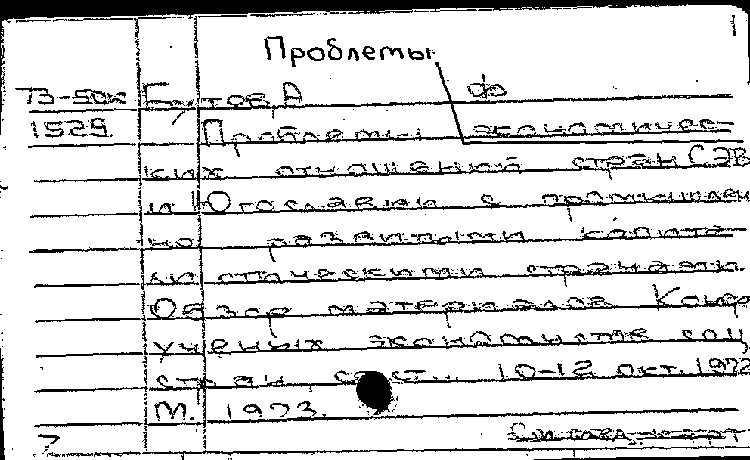 1
Проблемы
73-50к Бутов, А Ф
1529. Проблемы экономичес-
ких отношений стран СЭВ
и Югославии с промышлен
но развитыми капита-
листическими странами.
Обзор материалов Конф
ученых экономистов соц.
стран, сост. 10-12 окт. 1972
М. 1973.
7 См след. карт